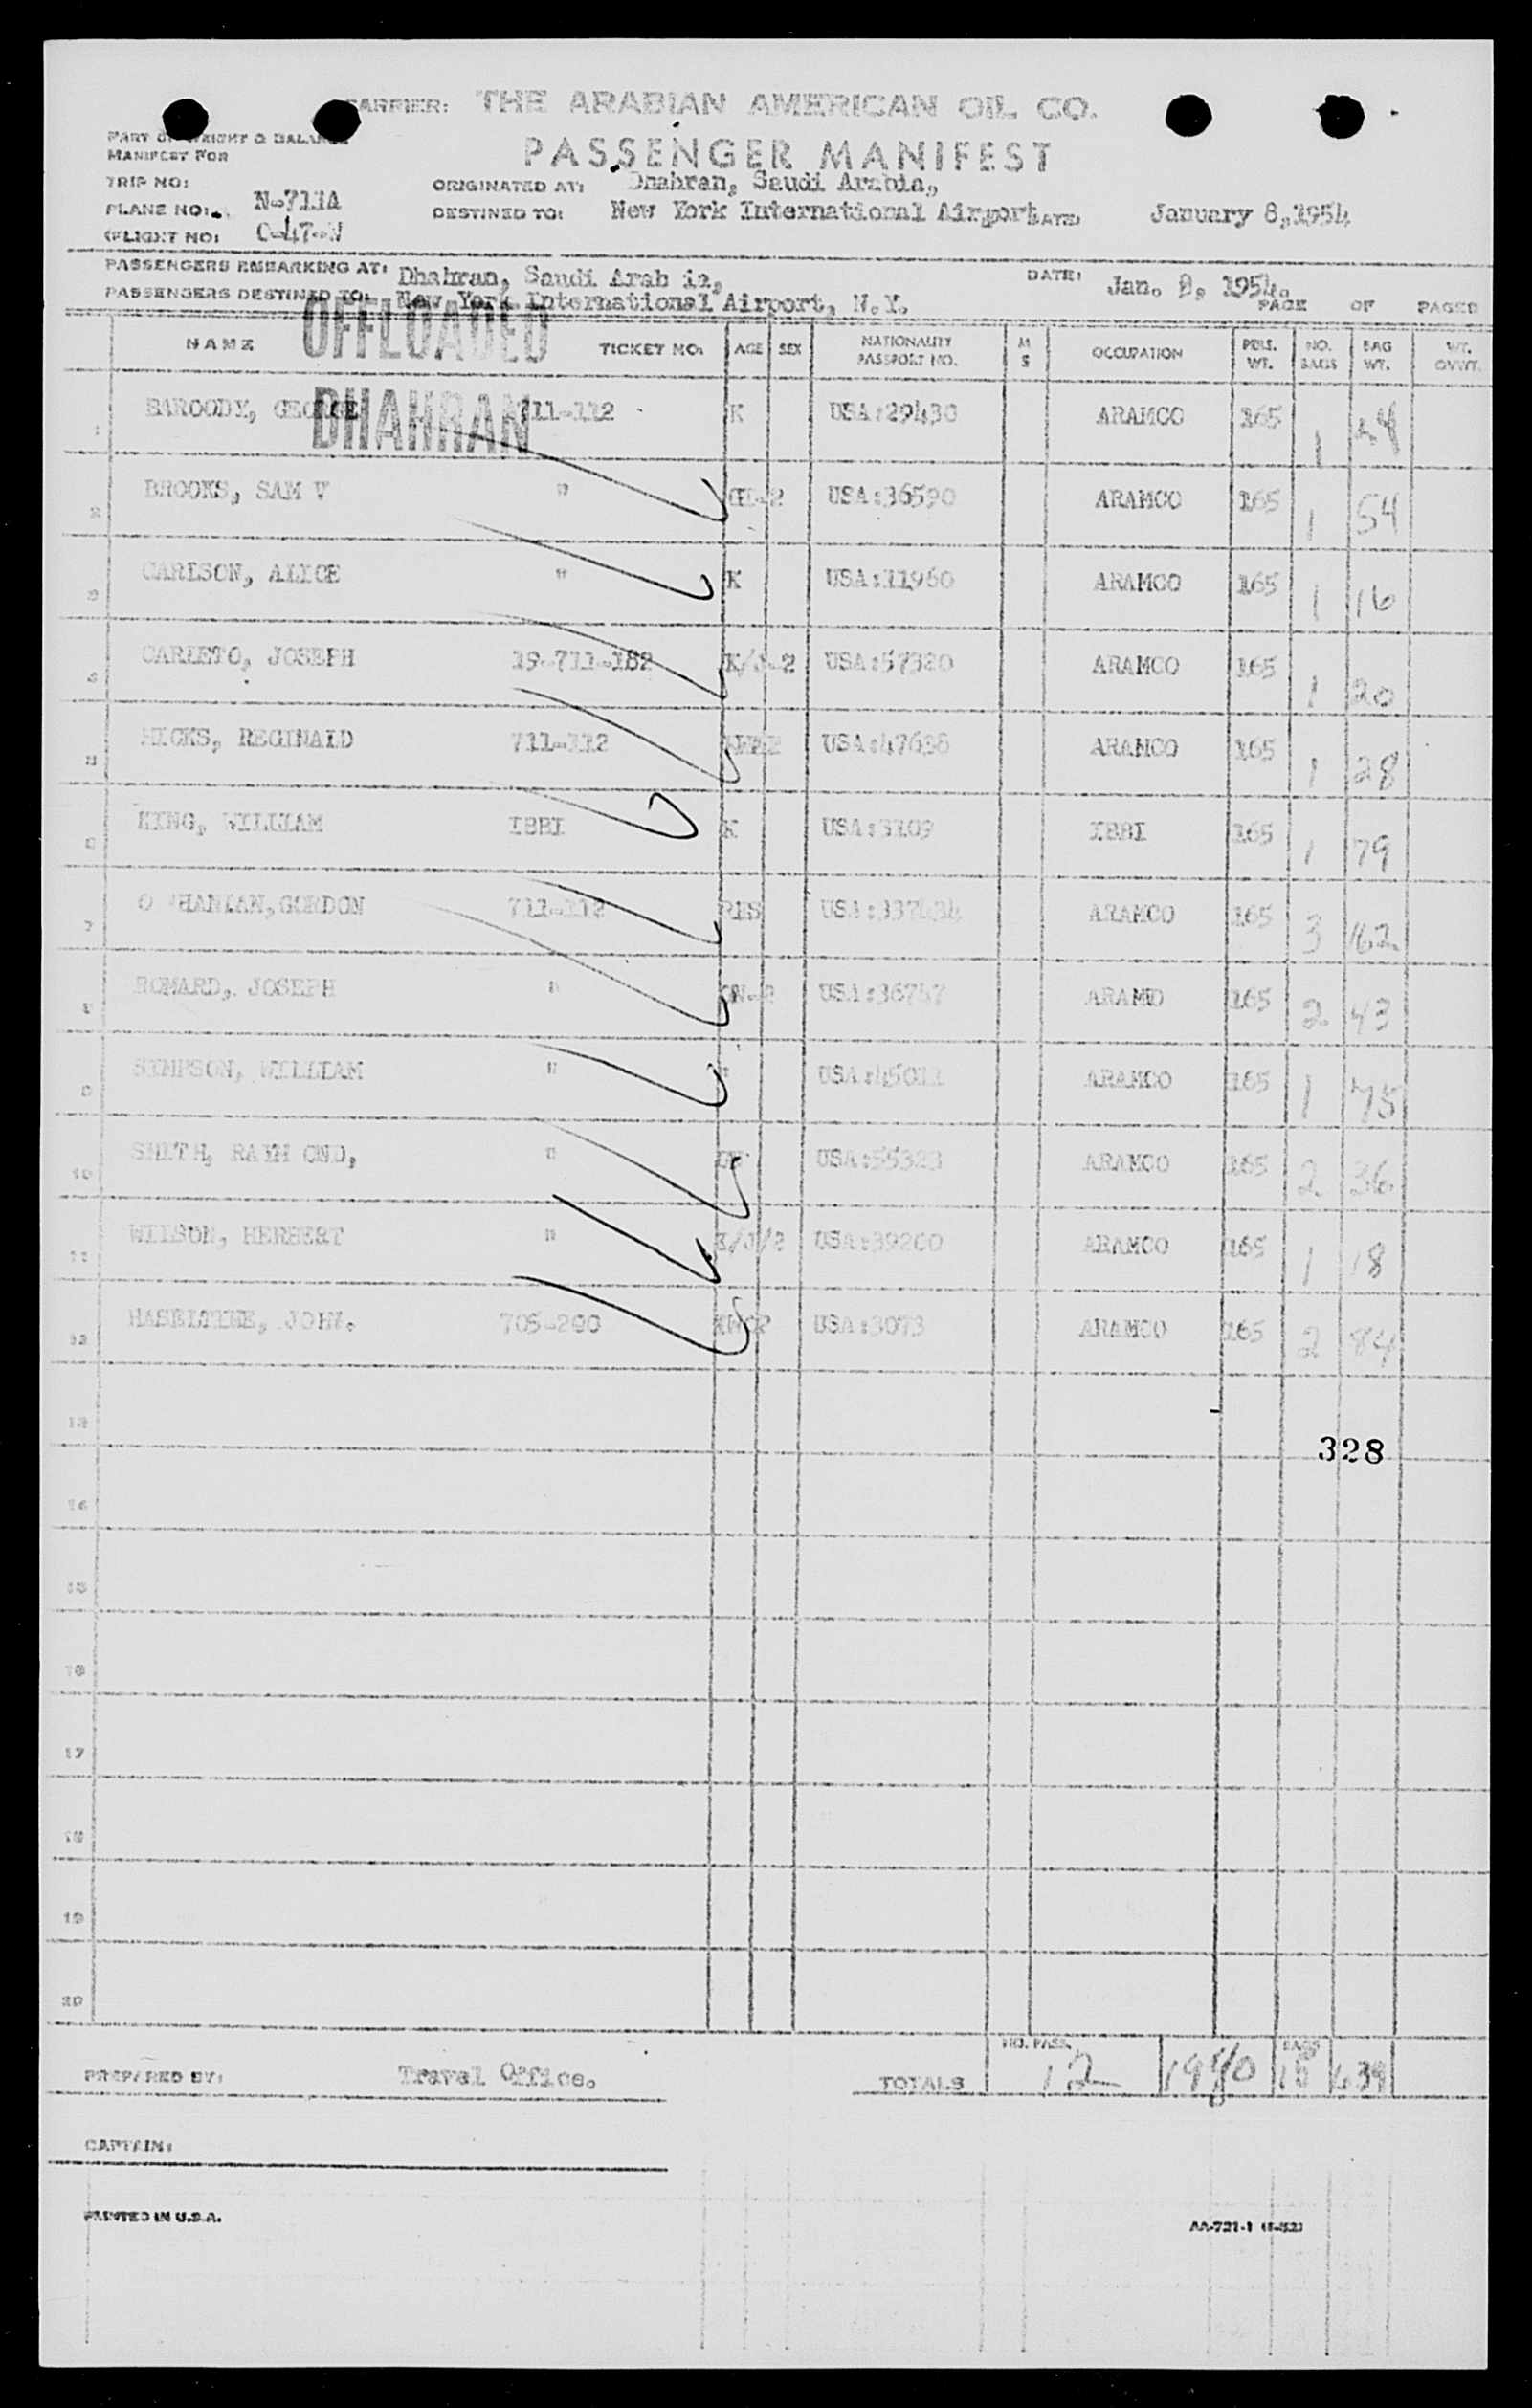 CARRIER: THE ARABIAN AMERICAN OIL CO.
PART OF WEIGHT & BALANCE
MANIFEST FOR
PASSENGER MANIFEST
TRIP NO:
ORIGINATED AT: Dhahran, Saudi Arabia,
PLANE NO: N-711A
DESTINED TO: New York International Airport DATE: January 8, 1954
(FLIGHT NO: C-47-
PASSENGERS EMBARKING AT: Dhahran, Saudi Arab ia, DATE: Jan. 8, 1954.
PASSENGERS DESTINED TO: New York International Airport, N.Y. PAGE OF PAGES
OFFLOADED
DHAHRAN
NAME TICKET NO: AGE SEX NATIONALITY PASSPORT NO. M S OCCUPATION PERS. WT. NO. BAGS BAG WT. WT. OVWT.
1 BAROODY, GEORGE 711-112 K USA:29430 ARAMCO 165 1
2 BROOKS, SAM V " USA:36590 ARAMCO 165 1 54
3 CARLSON, ALICE " K USA:11960 ARAMCO 165 1 16
4 CARLETO, JOSEPH 19-711-182 K/J-2 USA:57320 ARAMCO 165 1 20
5 HICKS, REGINALD 711-112 USA:47638 ARAMCO 165 1 28
6 KING, WILLIAM IBBI K USA:3109 IBBI 165 1 79
7 O HANIAN, GORDON 711-112 RES ARAMCO 165 3 162
8 ROMARD, JOSEPH " USA:36747 ARAMO 165 2 43
9 SIMPSON, WILLIAM " USA:45011 ARAMCO 165 1 75
10 SMITH, RAYM OND, " USA:55323 ARAMCO 165 2 36
11 WILSON, HERBERT " K/J/2 USA:39200 ARAMCO 165 1 18
12 HASELTINE, JOHN. 705-200 USA:3073 ARAMCO 165 2 84
13
328
14
15
16
17
18
19
20
NO. PASS. BAGS
PREPARED BY: Travel Office. TOTALS 12 1980 639
CAPTAIN:
PRINTED IN U.S.A.
AA-721-1 (5-52)